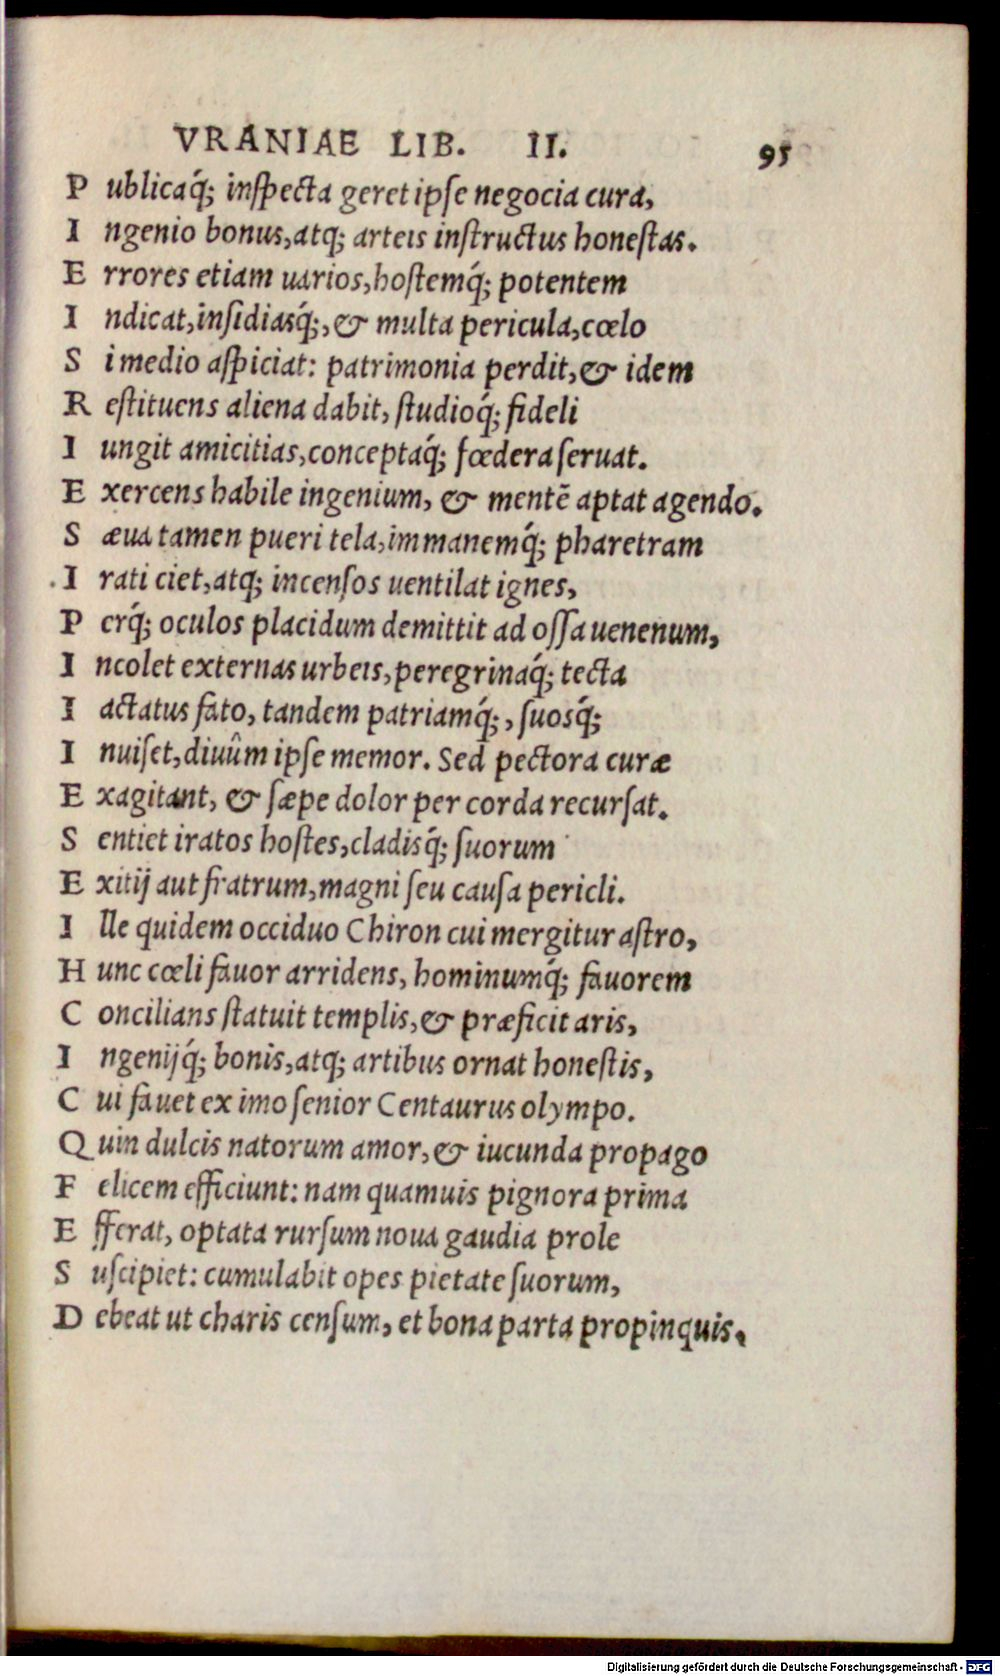 VRANIAE LIB. II. 95
P ublicaq́; inſpecta geret ipſe negocia cura,
I ngenio bonus, atq; arteis inſtructus honeſtas.
E rrores etiam uarios, hoſtemq́; potentem
I ndicat, inſidiasq́;, & multa pericula, cœlo
S i medio aſpiciat: patrimonia perdit, & idem
R eſtituens aliena dabit, ſtudioq́; fideli
I ungit amicitias, conceptaq́; fœdera ſeruat.
E xercens habile ingenium, & mentē aptat agendo.
S æua tamen pueri tela, immanemq́; pharetram
I rati ciet, atq; incenſos uentilat ignes,
P erq́; oculos placidum demittit ad oſſa uenenum,
I ncolet externas urbeis, peregrinaq́; tecta
I actatus fato, tandem patriamq́;, ſuosq́;
I nuiſet, diuûm ipſe memor. Sed pectora curæ
E xagitant, & ſæpe dolor per corda recurſat.
S entiet iratos hoſtes, cladisq́; ſuorum
E xitij aut fratrum, magni ſeu cauſa pericli.
I lle quidem occiduo Chiron cui mergitur aſtro,
H unc cœli fauor arridens, hominumq́; fauorem
C oncilians ſtatuit templis, & præficit aris,
I ngenijq́; bonis, atq; artibus ornat honeſtis,
C ui fauet ex imo ſenior Centaurus olympo.
Q uin dulcis natorum amor, & iucunda propago
F elicem efficiunt: nam quamuis pignora prima
E fferat, optata rurſum noua gaudia prole
S uſcipiet: cumulabit opes pietate ſuorum,
D ebeat ut charis cenſum, et bona parta propinquis,
Digitalisierung gefördert durch die Deutsche Forschungsgemeinschaft - DFG